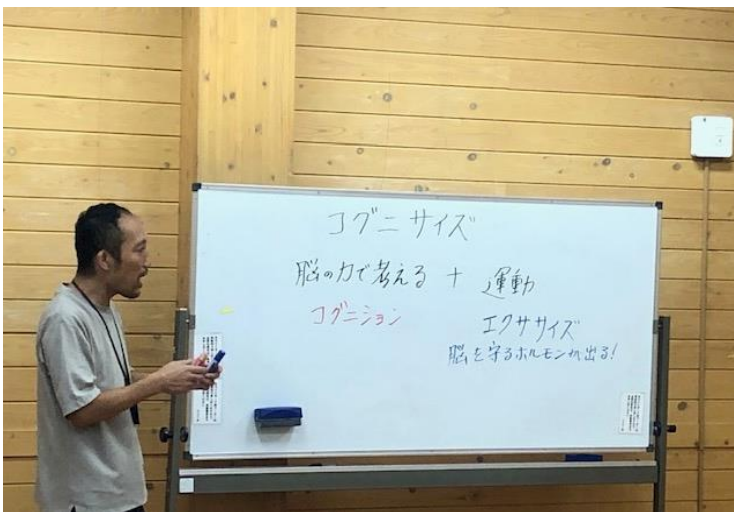 コグニサイズ
脳の力で考える + 運動
コグニション エクササイズ
脳を守るホルモンが出る!